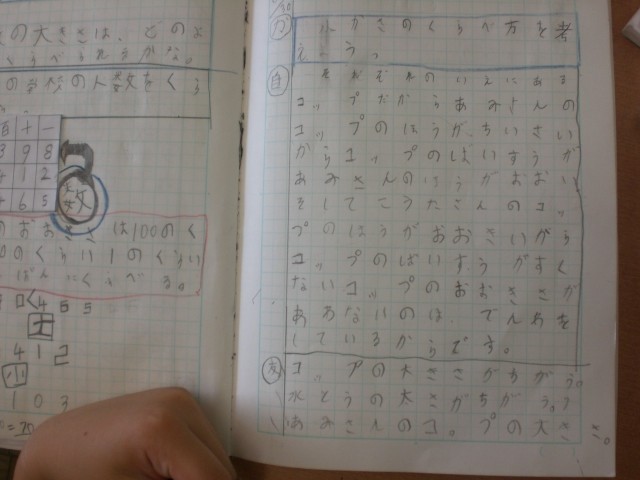 の大きさは、どのよ
くらべられるかな。
の学校の人数をくら
百 十 一
3 9 8
4 1 2
4 6 5
数
のおおきいは100のく
0のくらい1のくらい
ばんにくらべる。
口く455
土
412
小
103
かさのくらべ方を考
えよう。
自
それぞれのいえにある
コップだからあみさんの
コップのほうがちいさい
からコップのはいすうが
あみさんのほうがおおい
そしてこうたさんのコッ
プのほうがおおきいから
コップのはいすうがすく
ないコップのおおきさが
ああないのは、でんわを
しているからです。
友
コップの大きさがちがう。
水とうの大きさがちがう。
あみさんのコップの大き